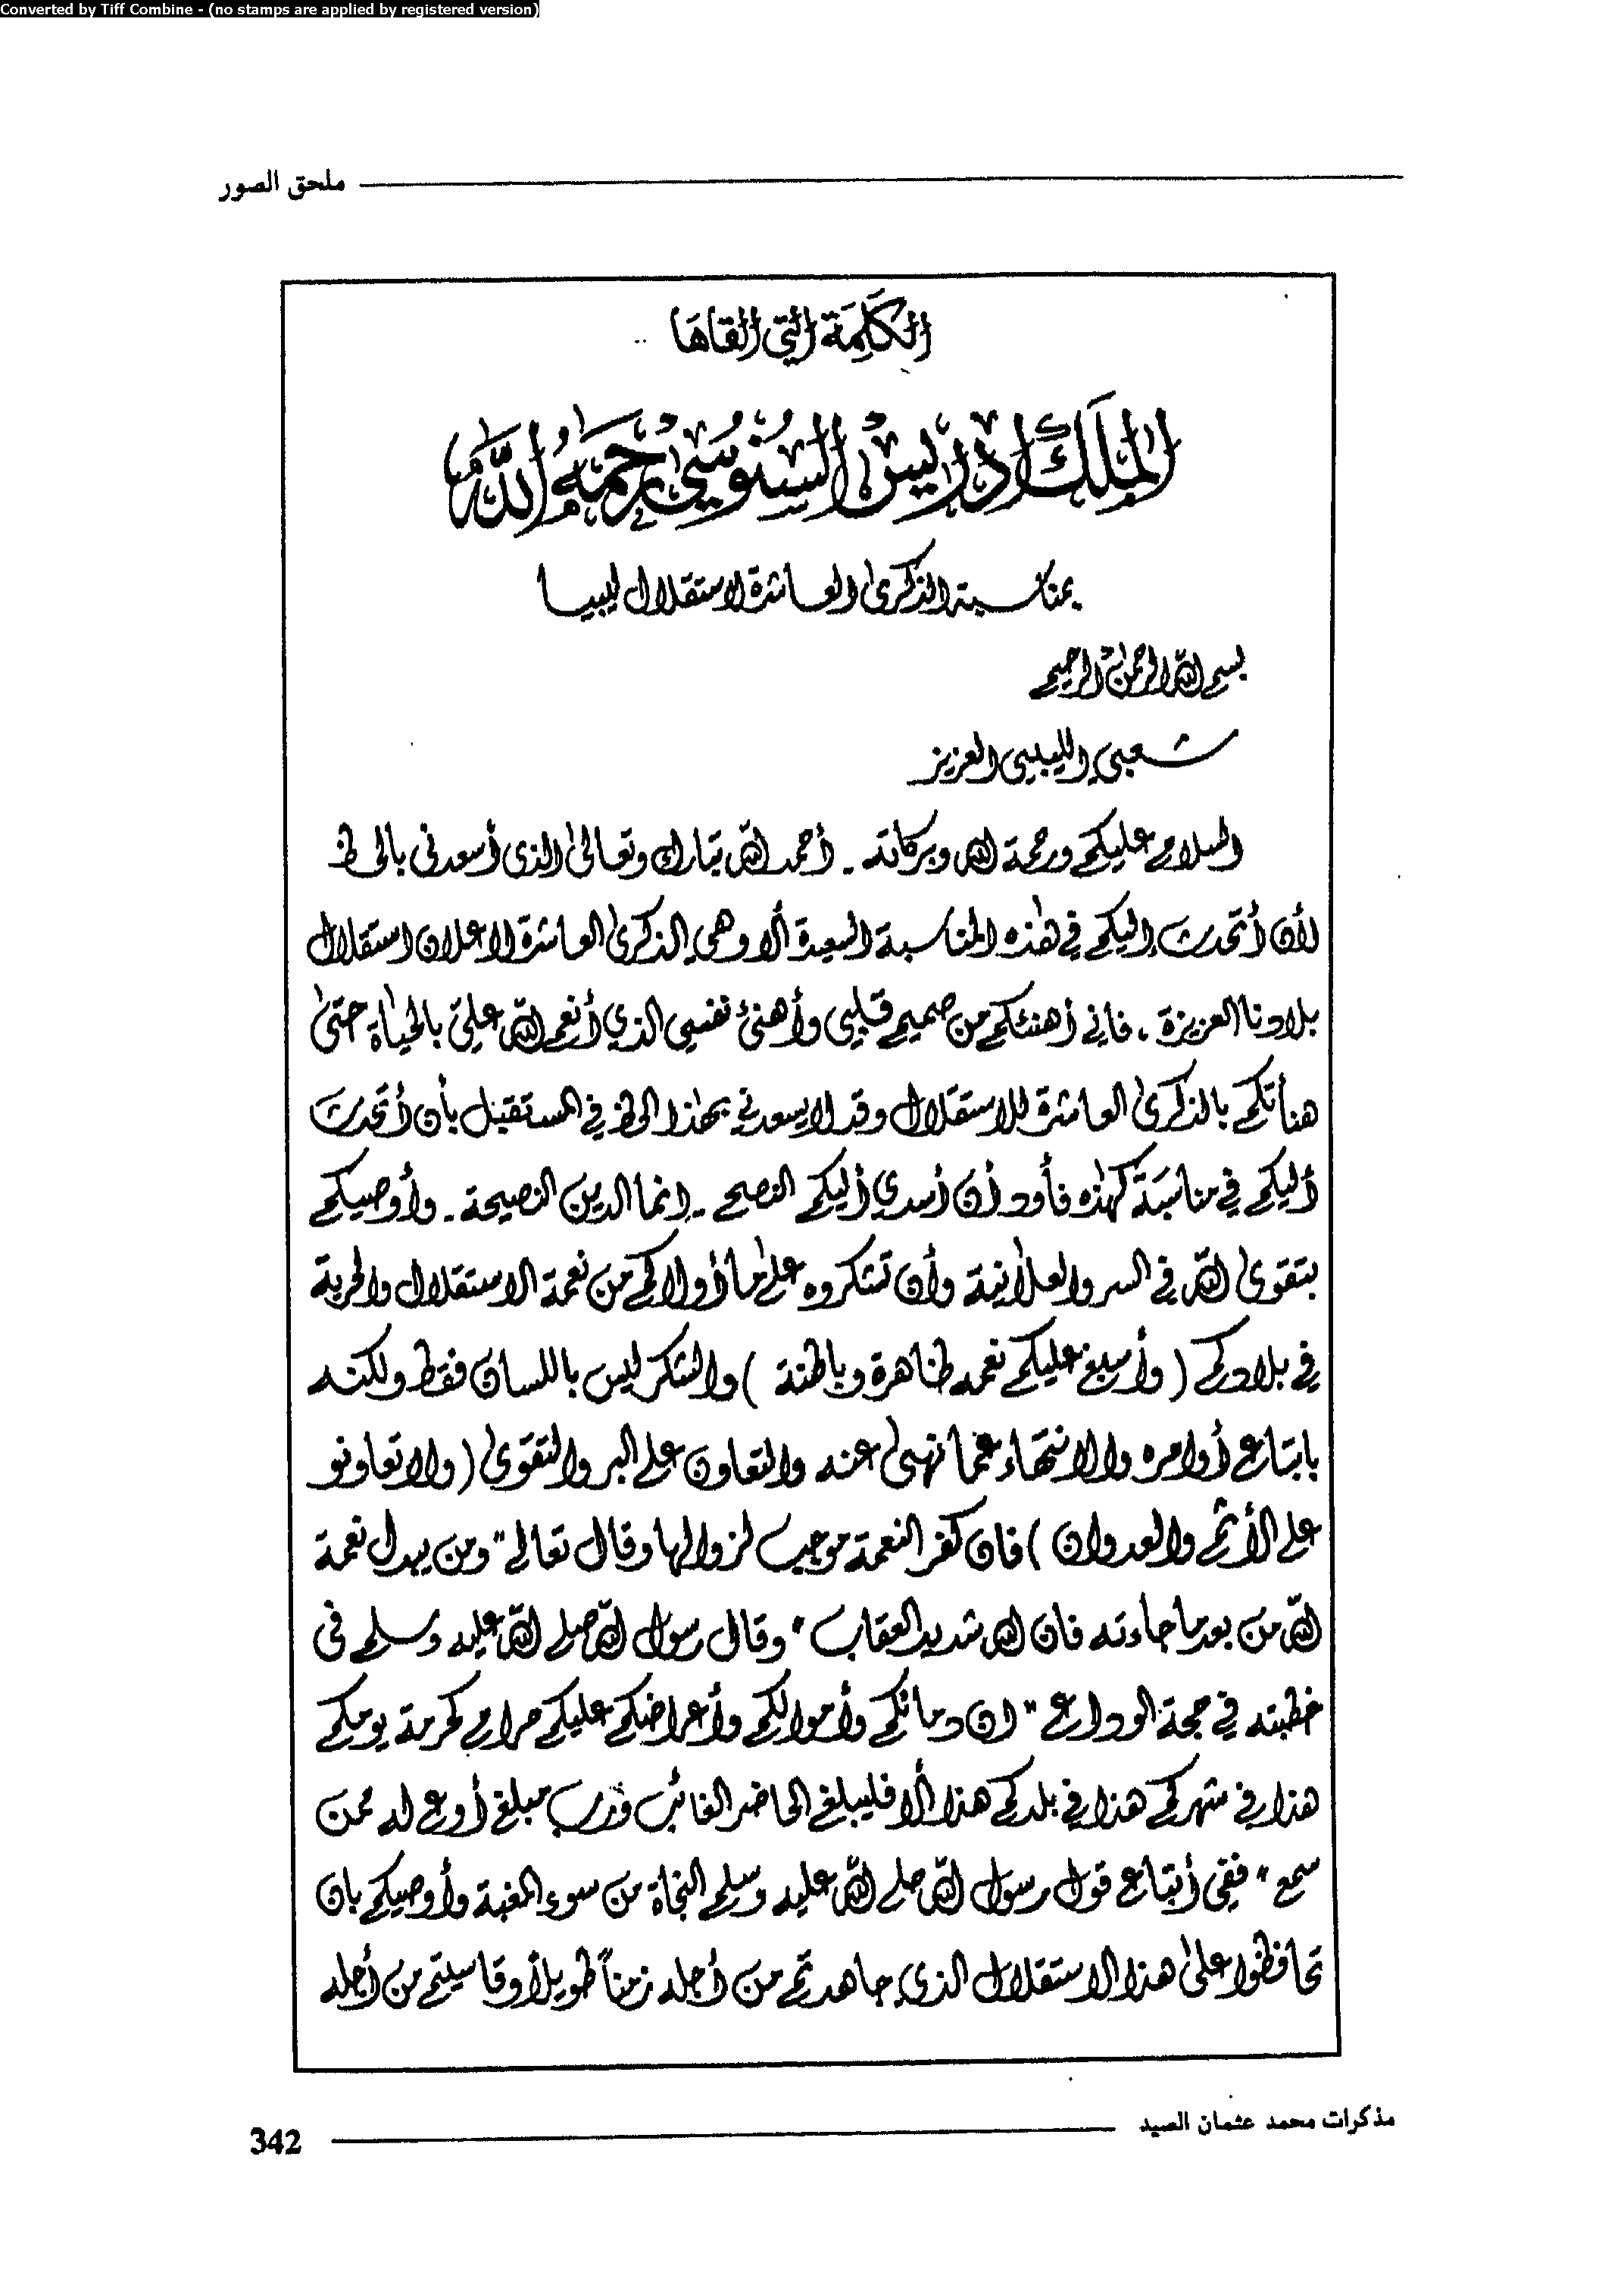 Converted by Tiff Combine - (no stamps are applied by registered version)
ملحق الصور
الكَلِمَة التي القاهَا
الملَك ادريسْ السنُوسيْ رحمَهُ اللّه
بمناسبة الذكرىٰ العاشرة لاستقلال ليبيا
بسم اللّه الرحمٰن الرحيم
شعبي الليبي العزيز
السلام عليكم ورحمة الله وبركاته - أحمد اللّه تبارك وتعالىٰ الذى أسعدنى بالحظ
لأن أتحدث إليكم في هٰذه المناسبة السعيدة ألا وهي الذكرىٰ العاشرة لاعلان استقلال
بلادنا العزيزة . فاني أهنئكم من صميم قلبي وأهنئ نفسي الذي أنعم اللّه عليّ بالحياة حتىٰ
هنأتكم بالذكرىٰ العاشرة للاستقلال وقد لا يسعدني بهٰذا الحظ في المستقبل بأن أتحدث
أليكم في مناسبَة كهٰذه فأود أن أسدي أليكم النصح - إنما الدين النصيحة - وأوصيكم
بتقوىٰ اللّه في السر والعلانية وأن تشكروه علىٰ ما أولاكم من نعمة الاستقلال والحرية
في بلادكم ( وأسبغ عليكم نعمه ظاهرة وباطنة ) والشكر ليس باللسان فقط ولكنه
باتباع أوامره والانتهاء عما نهىٰ عنه والتعاون على البر والتقوىٰ ( ولا تعاونو
على الأثم والعدوان ) فان كفر النعمة موجب لزوالها وقال تعالى " ومن يبدل نعمة
اللّه من بعد ما جاءته فان الله شديد العقاب " وقال رسول اللّه صلى اللّه عليه وسلم فى
خطبته في حجة الوداع " ان دمائكم وأموالكم وأعراضكم عليكم حرام كحرمة يومكم
هذا في شهركم هذا في بلدكم هذا ألا فليبلغ الحاضر الغائب فرب مبلغ أوعى له ممن
سمع " ففي أتباع قول رسول اللّه صلى اللّه عليه وسلم النجاة من سوء المغبة وأوصيكم بان
تحافظوا علىٰ هذا الاستقلال الذي جاهدتم من أجله زمناً طويلاً وقاسيتم من أجله
مذكرات محمد عثمان الصيد
342